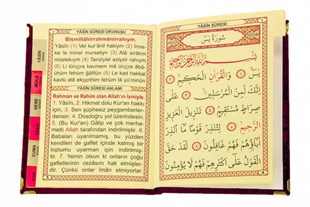 YÂSÎN SÛRESİ OKUNUŞU
Bismillâhirrahmânirrahıym.
Yâsîn (1) Vel kur'ânil hakiym (2) İnne-
ke le minel murseliyn (3) Alâ sırâtim
müstekıym (4) Tenziylel aziyzirrahıym
(5) Li tünzira kavmem mâ ünzira âbâ-
ühüm fehüm ğâfilûn (6) Le kad hakkal
kavlü alâ ekserihim fehüm lâ yü'minûn
YÂSÎN SÛRESİ ANLAMI
Rahman ve Rahim olan Allah'ın İsmiyle.
1. (Yâsîn), 2. Hikmet dolu Kur'an hakkı
için, 3. Sen şüphesiz peygamberler-
densin. 4. Dosdoğru yol üzerindesin.
5. (Bu Kur'an) Gâlip ve çok merha-
metli Allah tarafından indirilmiştir. 6.
Babaları uyarılmamış, bu yüzden
kendileri de gaflet içinde kalmış bir
toplumu uyarman için indirilmiş-
tir. 7. Yemin olsun ki onların çoğu
gafletlerinin cezasını hak etmiştir.
Çünkü onlar iman etmiyorlar.
YÂSÎN
MÜLK
NEBE
CUMA
YÂSÎN SÛRESİ
سُورَةُ يٰسٓ
يٰسٓ ﴿١﴾ وَالْقُرْاٰنِ الْحَكِيمِ ﴿٢﴾
اِنَّكَ لَمِنَ الْمُرْسَلِينَ ﴿٣﴾ عَلٰى
صِرَاطٍ مُسْتَقِيمٍ ﴿٤﴾ تَنْزِيلَ الْعَزِيزِ
الرَّحِيمِ ﴿٥﴾ لِتُنْذِرَ قَوْمًا مَٓا اُنْذِرَ
اٰبَٓاؤُهُمْ فَهُمْ غَافِلُونَ ﴿٦﴾ لَقَدْ حَقَّ
الْقَوْلُ عَلٰٓى اَكْثَرِهِمْ فَهُمْ لَا يُؤْمِنُونَ